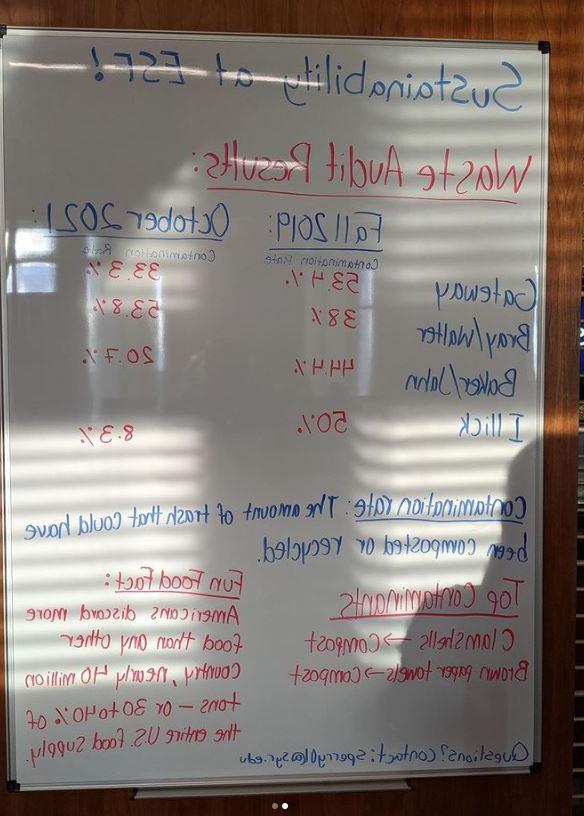 Sustainability at ESF!
Waste Audit Results:
Fall 2019: October 2021:
Contamination Rate Contamination Rate
Gateway 53.4% 33.3%
Bray/Walter 38% 53.8%
Baker/Jahn 44.4% 20.7%
Illick 50% 8.3%
Contamination rate: The amount of trash that could have
been composted or recycled.
Top Contaminants
Clamshells → Compost
Brown paper towels → Compost
Fun Food Fact:
Americans discard more
food than any other
country, nearly 40 million
tons - or 30 to 40% of
the entire US food supply.
Questions? Contact: sperry01@syr.edu